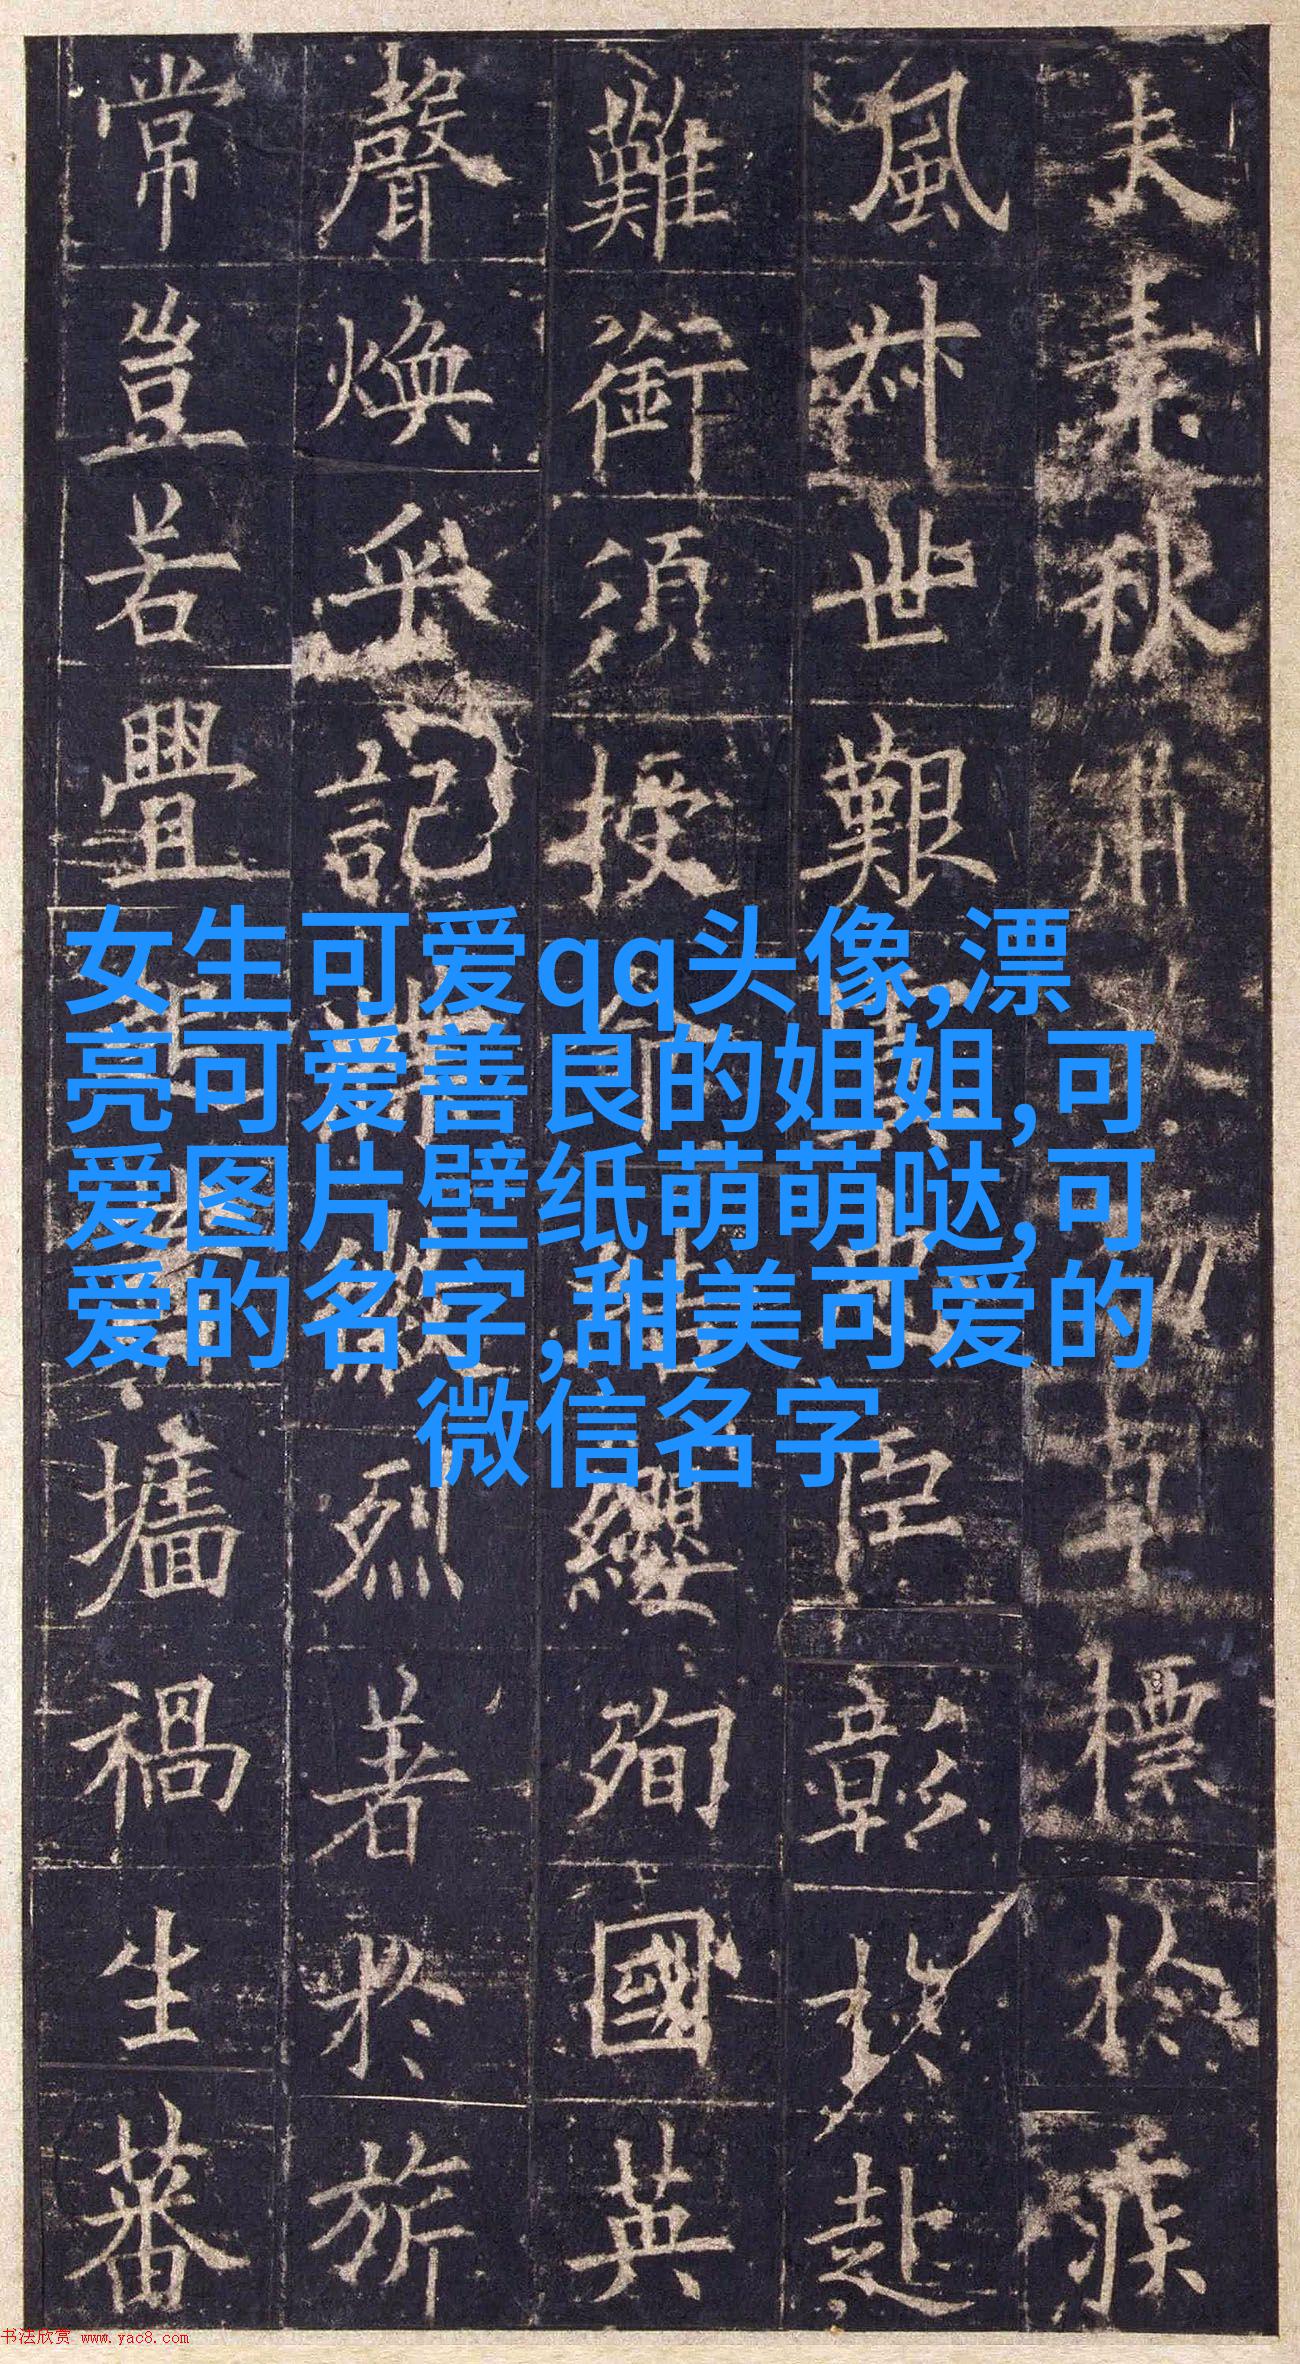 夫素秋肅勁草標於疾
風叔世艱虞忠臣彰於赴
難銜須授命結纓殉國英
聲煥乎記牒徽烈著於旂
常豈若釁起蕭墻禍生蕃
女生可爱qq头像,漂
亮可爱善良的姐姐,可
爱图片壁纸萌萌哒,可
爱的名字,甜美可爱的
微信名字
书法欣赏 www.yac8.com